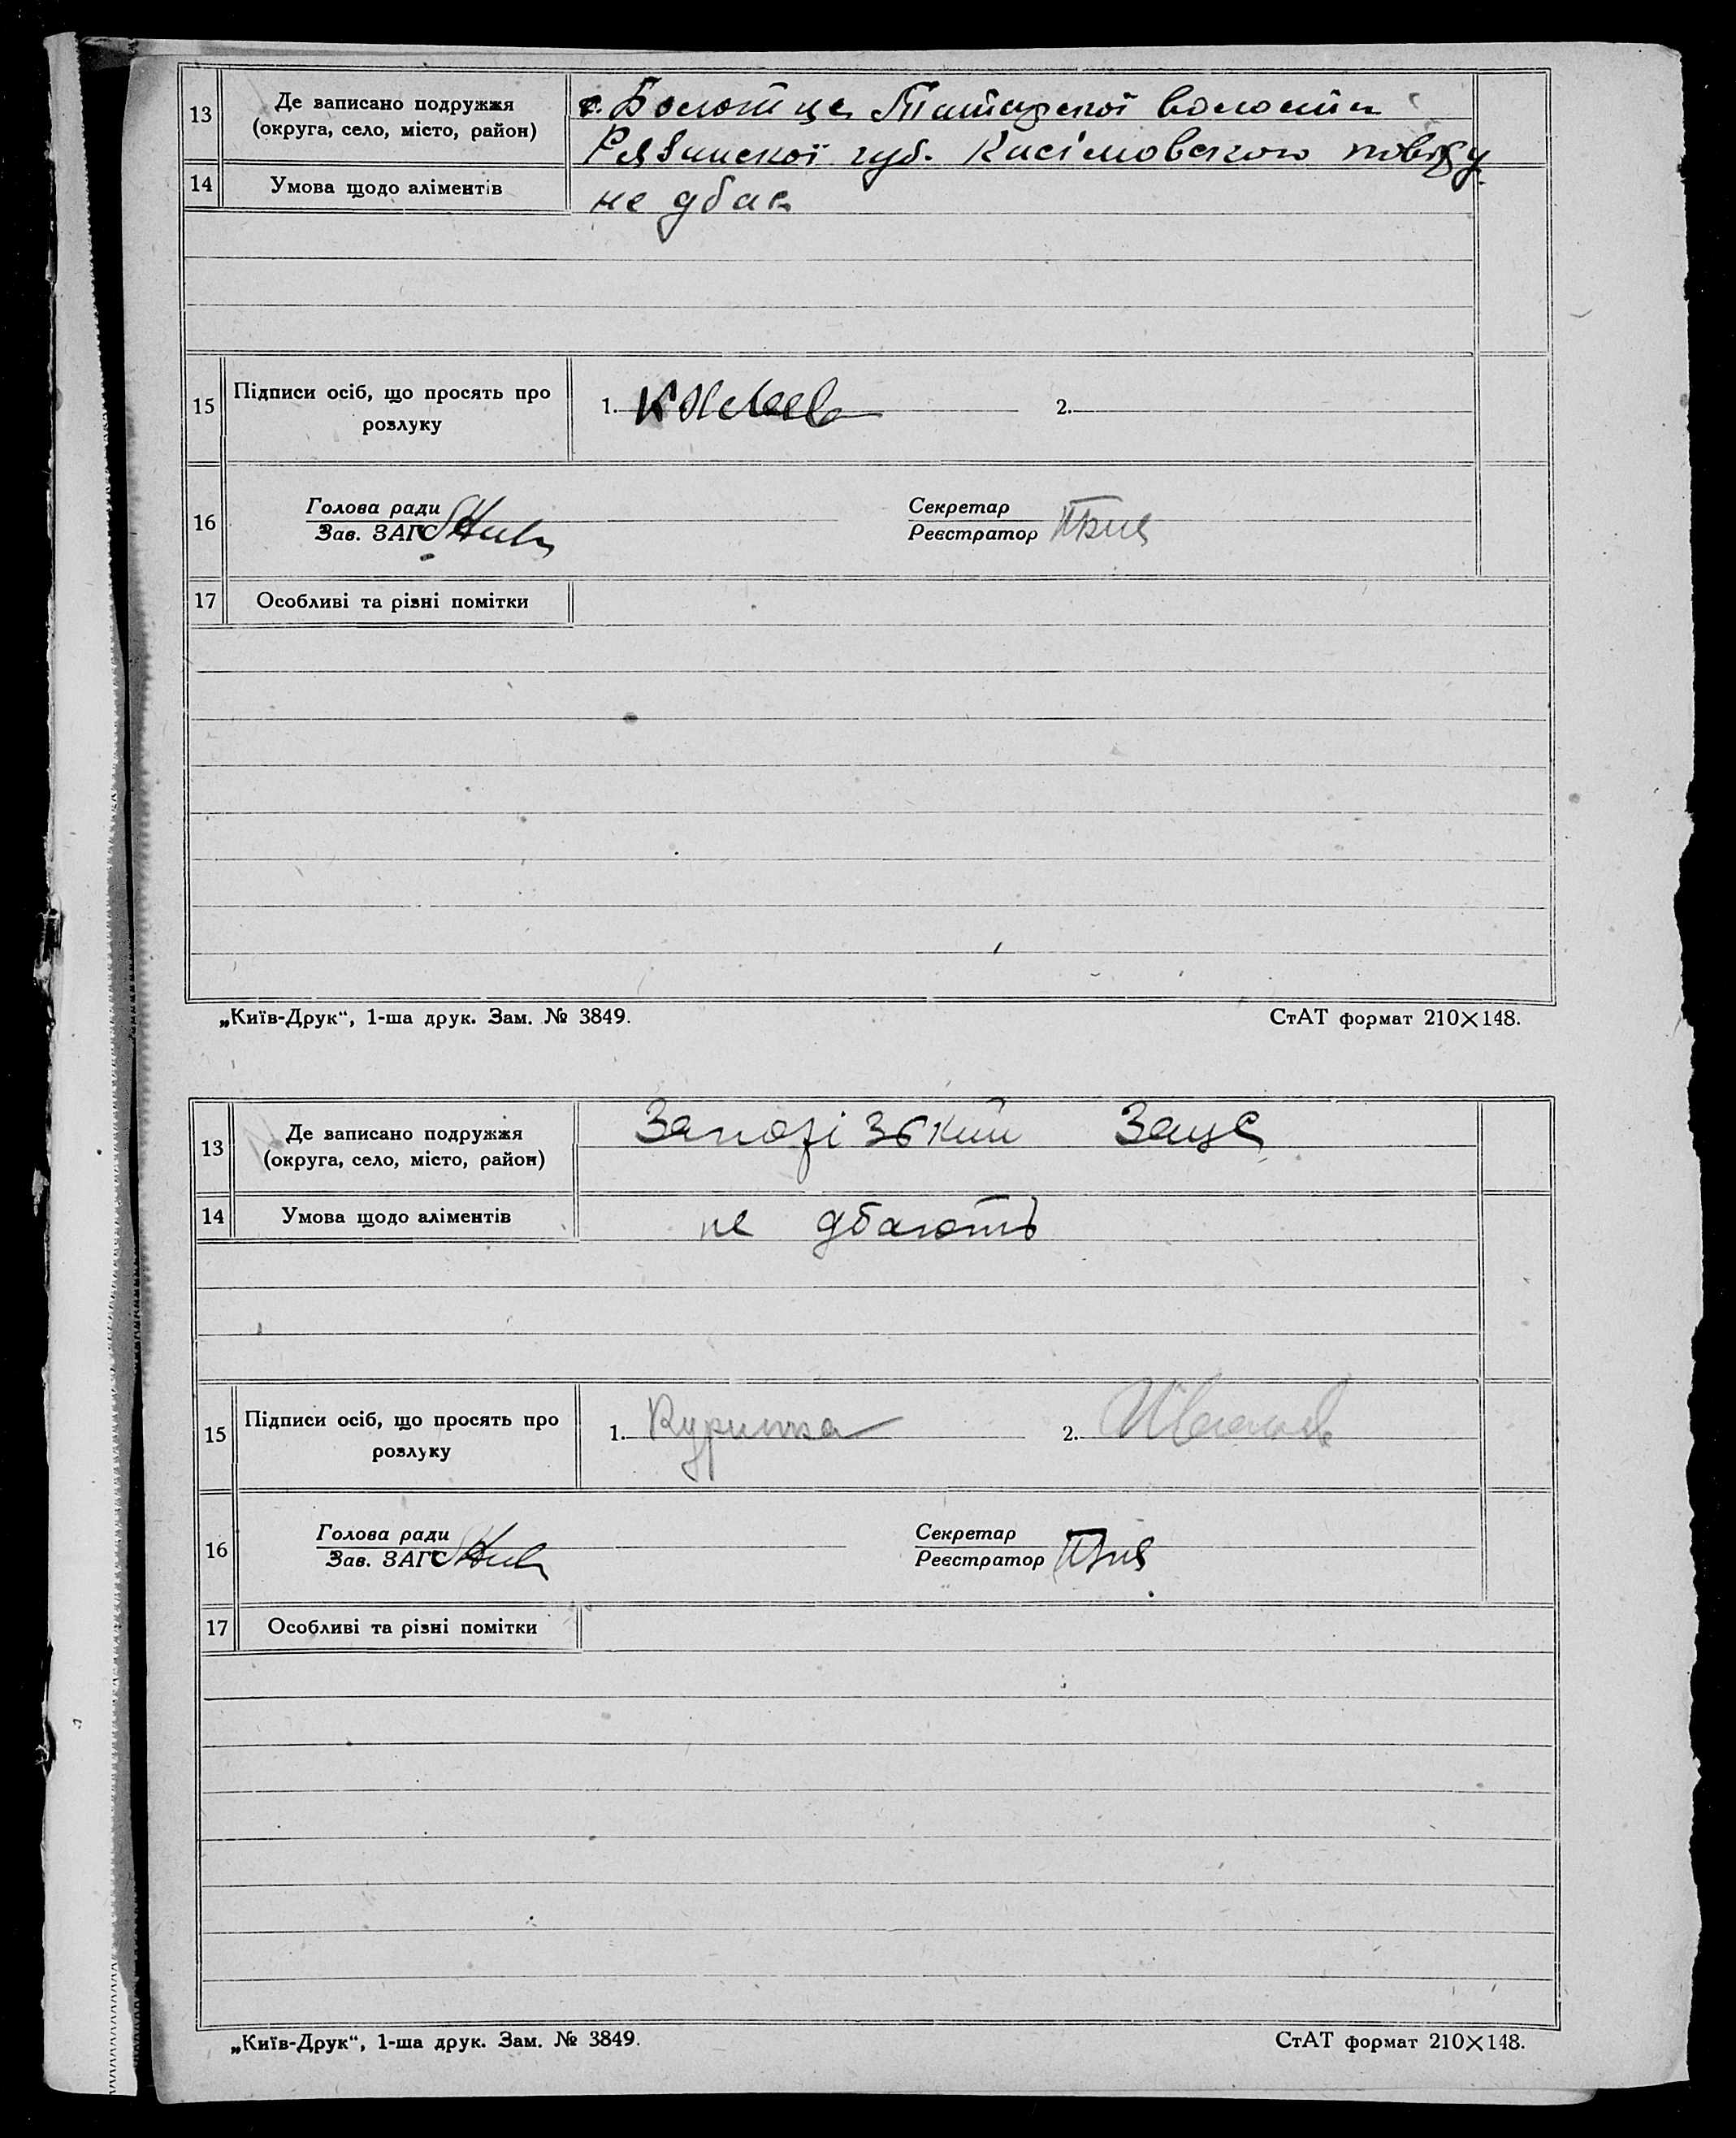 13
Де записано подружжя
(округа, село, місто, район)
с. Болотце Татарскої волости
Рязанскої губ. Касімовского повіту
14
Умова щодо аліментів
не дбає
15
Підписи осіб, що просять про
розлуку
1.
2.
16
Голова ради
Зав. ЗАГС
Секретар
Реєстратор
17
Особливі та різні помітки
„Київ-Друк“, 1-ша друк. Зам. № 3849.
СтАТ формат 210×148.
13
Де записано подружжя
(округа, село, місто, район)
Запорізький Загс
14
Умова щодо аліментів
не дбають
15
Підписи осіб, що просять про
розлуку
1.
2. Иванов
16
Голова ради
Зав. ЗАГС
Секретар
Реєстратор
17
Особливі та різні помітки
„Київ-Друк“, 1-ша друк. Зам. № 3849.
СтАТ формат 210×148.